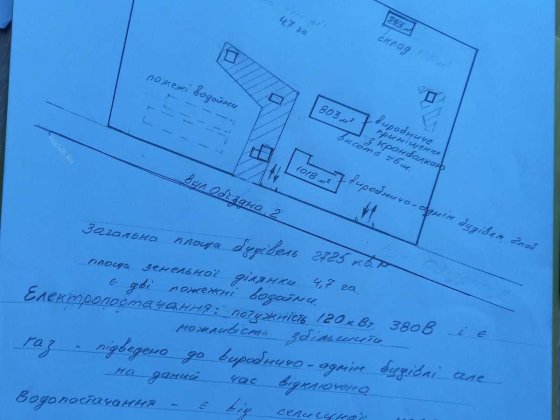 4,7 га
343 м²
склад
пожежі водойми
803 м²
виробниче
приміщення
з кранбалкою
висота 7,6м.
1018 м²
виробничо-адмін будівля
вул Об'їздна 2
Загальна площа будівель 2725 кв.м
площа земельної ділянки 4,7 га
є дві пожежні водойми.
Електропостачання: потужність 120 кВт, 380В і є
можливість збільшити
газ - підведено до виробничо-адмін будівлі але
на даний час відключено
Водопостачання - є від селищної